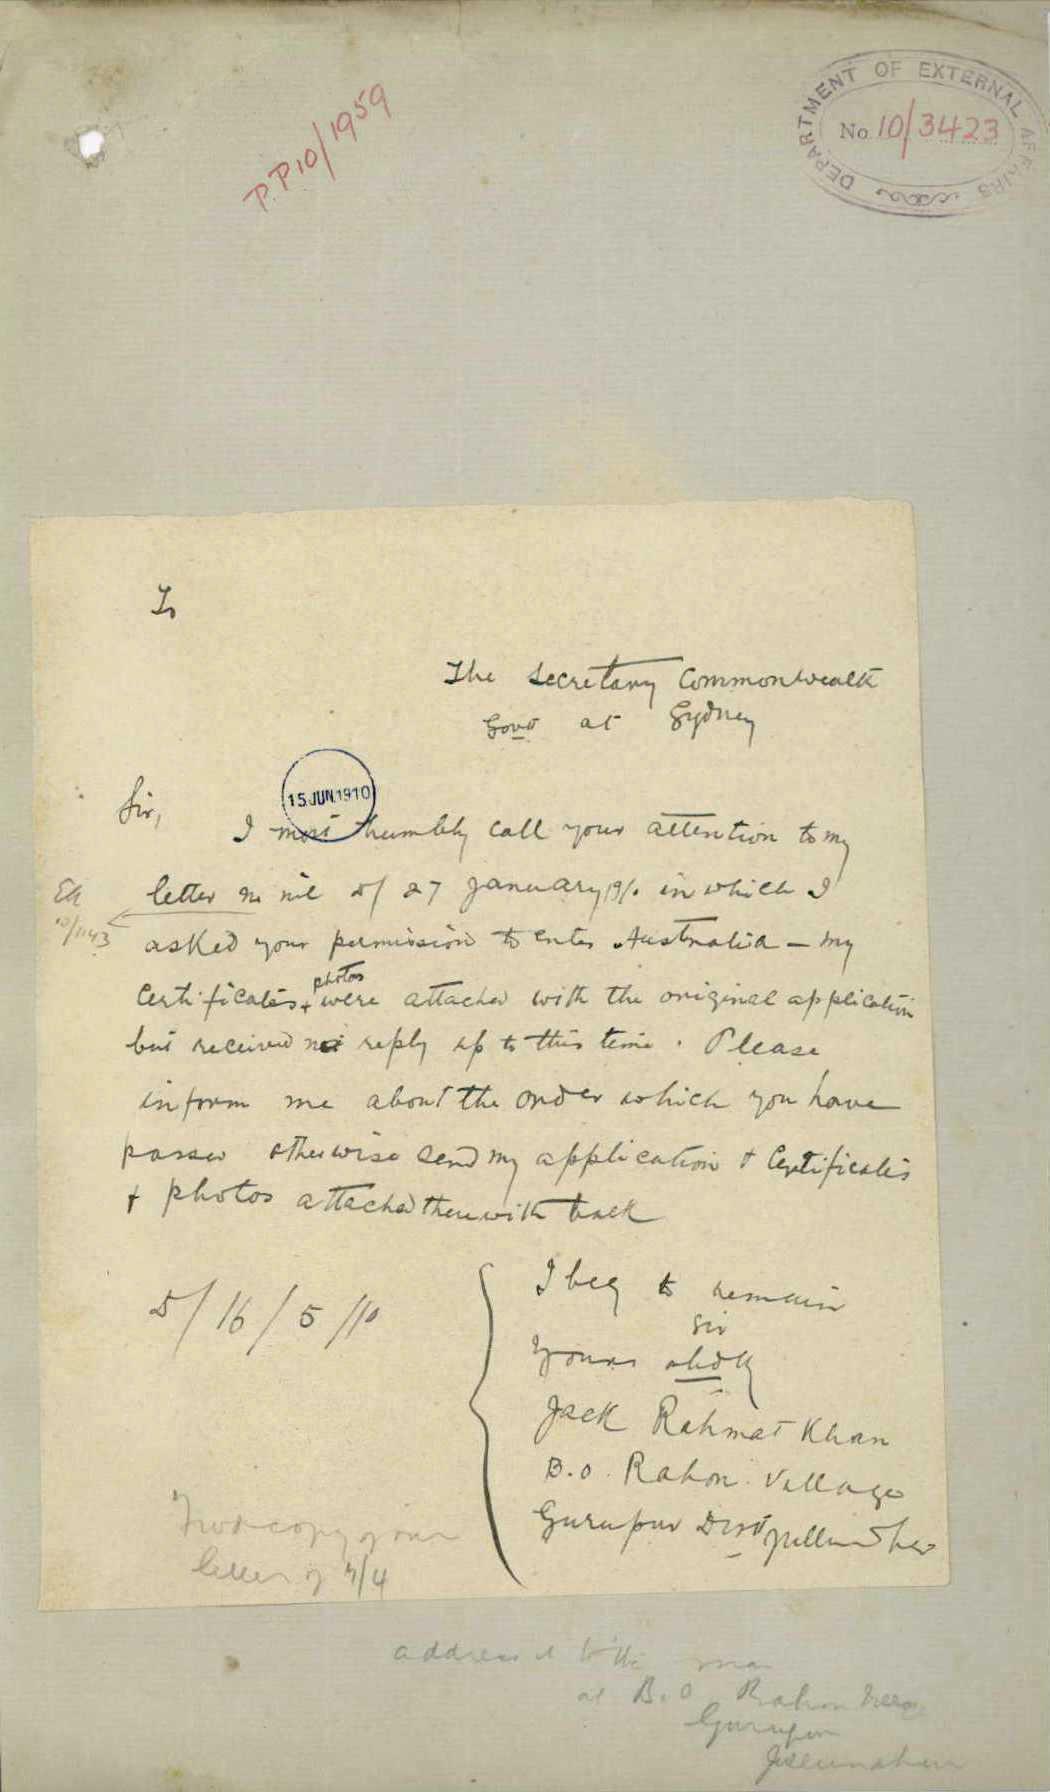 P.P10/1959
DEPARTMENT OF EXTERNAL AFFAIRS
No 10/3423
To
The Secretary Commonwealth
Govt at Sydney
15 JUN 1910
Sir,
I most humbly call your attention to my
letter no nil d/ 27 January 1910 in which I
10/1143
asked your permission to enter Australia – my
photos
Certificates + were attached with the original application
but received no reply up to this time. Please
inform me about the order which you have
passed otherwise send my application & Certificates
+ photos attached therewith back
D/ 16/5/10
I beg to remain
Sir
Yours obdtly
Jack Rahmat Khan
B.O. Rahon Village
Gurupur Dist Jullundher
copy of our
letter of 7/4
address it to the man
at B.O Rahon
Gurupur
Jullundher